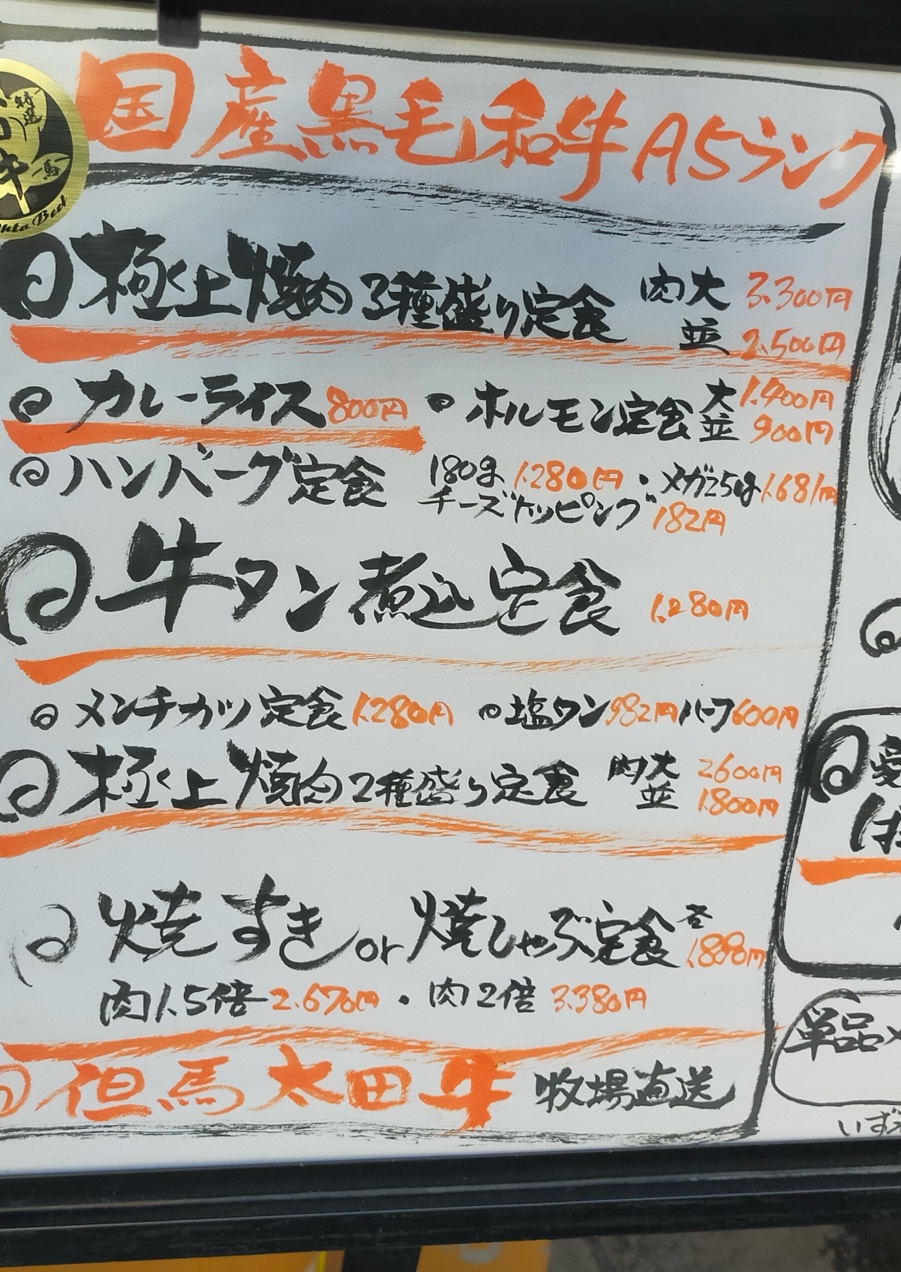 国産黒毛和牛A5ランク
特選
極上焼肉3種盛り定食 肉大 3.300円
並 2.500円
カレーライス 800円 ホルモン定食 大 1.400円
並 900円
ハンバーグ定食 180g 1.280円・メガ250g 1.681円
チーズトッピング 182円
牛タン煮込定食 1.280円
メンチカツ定食 1.280円 塩タン 982円 ハーフ 600円
極上焼肉2種盛り定食 肉大 2600円
並 1.800円
焼すきor焼しゃぶ定食 各
肉1.5倍 2.670円・肉2倍 3.380円
但馬太田牛 牧場直送
単品
いず